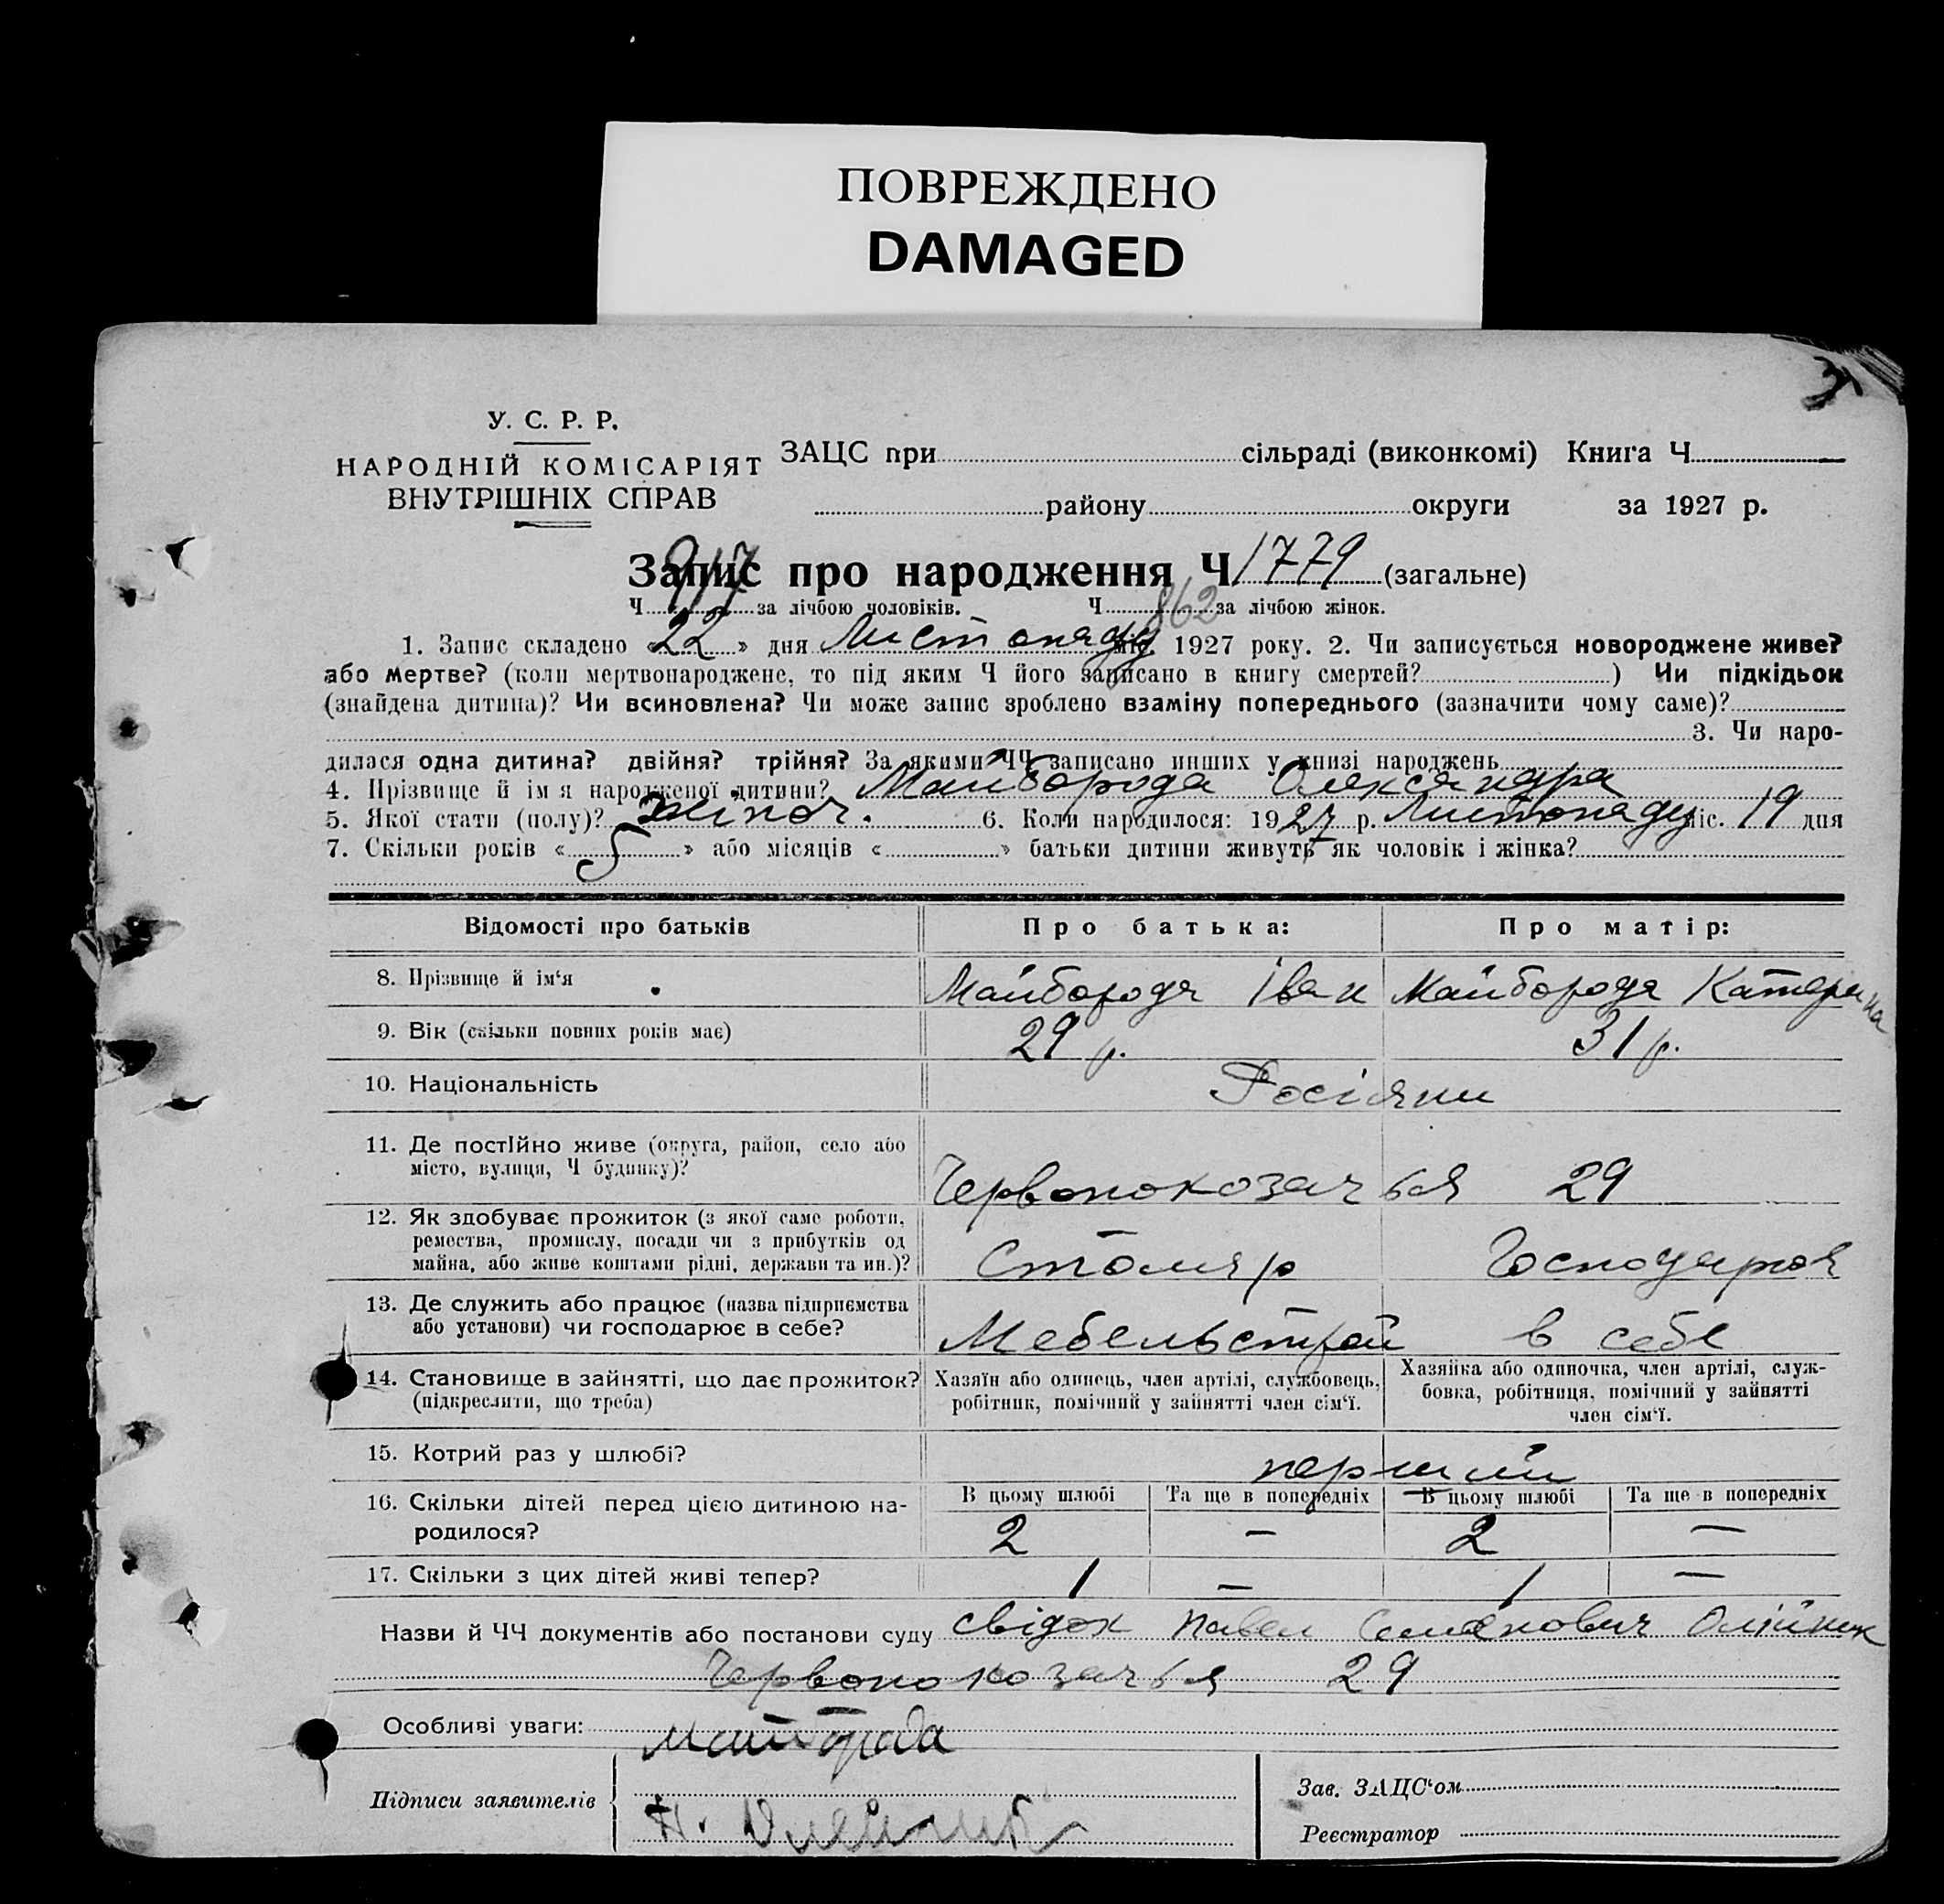 ПОВРЕЖДЕНО
DAMAGED
У. С. Р. Р.
НАРОДНІЙ КОМІСАРІЯТ
ВНУТРІШНІХ СПРАВ
ЗАЦС при сільраді (виконкомі) Книга Ч
району округи за 1927 р.
Запис про народження Ч 1779 (загальне)
Ч 917 за лічбою чоловіків. Ч 862 за лічбою жінок.
1. Запис складено «22» дня Листопаду міс. 1927 року. 2. Чи записується новороджене живе?
або мертве? (коли мертвонароджене, то під яким Ч його записано в книгу смертей? ) Чи підкідьок
(знайдена дитина)? Чи всиновлена? Чи може запис зроблено взаміну попереднього (зазначити чому саме)?
3. Чи наро-
дилася одна дитина? двійня? трійня? За якими ЧЧ записано инших у книзі народжень
4. Прізвище й ім я народженої дитини? Майборода Олександра
5. Якої стати (полу)? жіноч. 6. Коли народилося: 1927 р. Листопаду міс. 19 дня
7. Скільки років «5» або місяців « » батьки дитини живуть як чоловік і жінка?
Відомості про батьків Про батька: Про матір:
8. Прізвище й ім‘я Майборода Іван Майборода Катерина
9. Вік (скільки повних років має) 29 р. 31 р.
10. Національність Росіяни
11. Де постійно живе (округа, район, село або
місто, вулиця, Ч будинку)? Червонокозачья 29
12. Як здобуває прожиток (з якої саме роботи,
ремества, промислу, посади чи з прибутків од
майна, або живе коштами рідні, держави та ин.)? Столяр Господарюя
13. Де служить або працює (назва підприємства
або установи) чи господарює в себе? Мебельстрой в себе
14. Становище в зайнятті, що дає прожиток?
(підкреслити, що треба)
Хазяїн або одинець, член артілі, службовець,
робітник, помічний у зайнятті член сім‘ї.
Хазяйка або одиночка, член артілі, служ-
бовка, робітниця, помічний у зайнятті
член сім‘ї.
15. Котрий раз у шлюбі? перший
16. Скільки дітей перед цією дитиною на-
родилося?
В цьому шлюбі Та ще в попередніх В цьому шлюбі Та ще в попередніх
2 — 2 —
17. Скільки з цих дітей живі тепер? 1 — 1 —
Назви й ЧЧ документів або постанови суду свідок Павел Семенович Олійник
Червонокозачья 29
Особливі уваги:
Майборода
Підписи заявителів
П. Олейник
Зав. ЗАЦС‘ом
Реєстратор